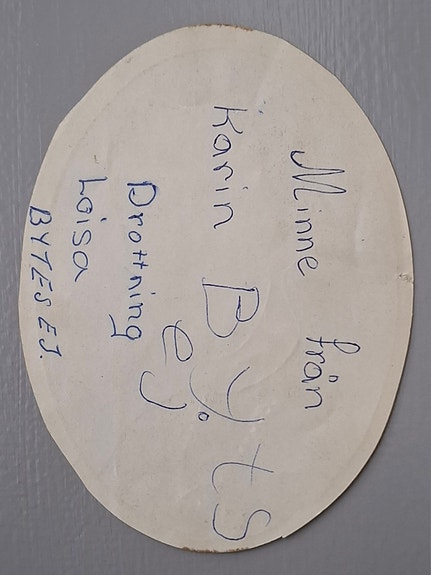 Minne från
Karin Byts
ej
Drottning
Laisa
BYTES EJ.